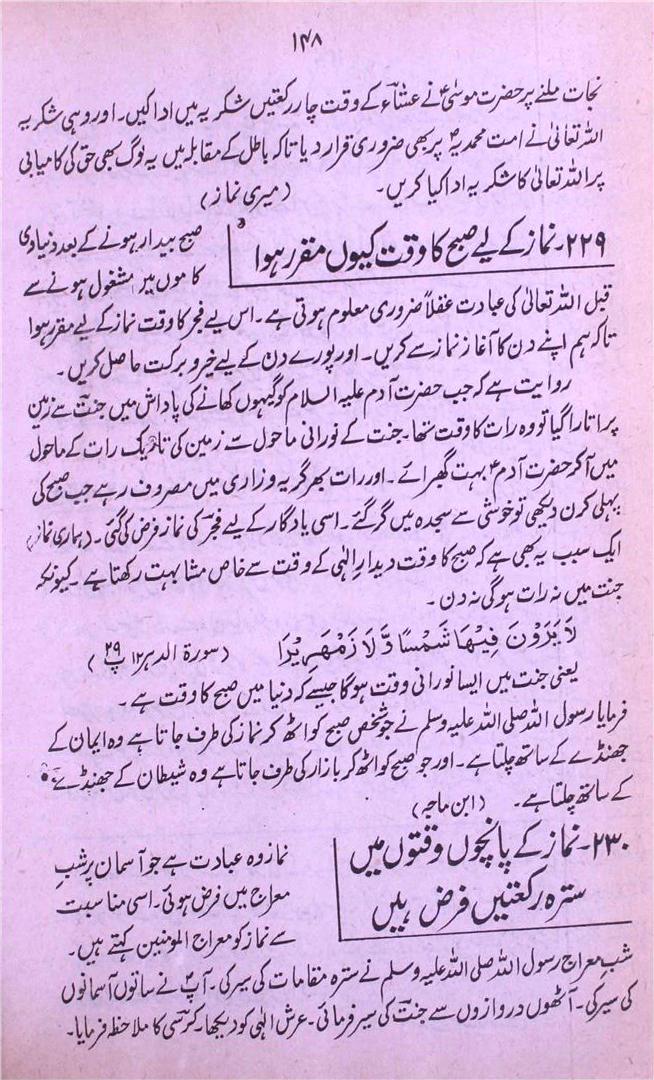 ۱۴۸
نجات ملنے پر حضرت موسیٰؑ نے عشاء کے وقت چار رکعتیں شکریہ میں ادا کیں۔ اور وہی شکریہ
اللہ تعالیٰ نے امت محمدیہؐ پر بھی ضروری قرار دیا تاکہ باطل کے مقابلہ میں یہ لوگ بھی حق کی کامیابی
پر اللہ تعالیٰ کا شکریہ ادا کیا کریں۔ (میری نماز)
۲۲۹۔ نماز کے لیے صبح کا وقت کیوں مقرر ہوا
صبح بیدار ہونے کے بعد دنیاوی
کاموں میں مشغول ہونے سے
قبل اللہ تعالیٰ کی عبادت عقلاً ضروری معلوم ہوتی ہے۔ اس لیے فجر کا وقت نماز کے لیے مقرر ہوا
تاکہ ہم اپنے دن کا آغاز نماز سے کریں۔ اور پورے دن کے لیے خیر و برکت حاصل کریں۔
روایت ہے کہ جب حضرت آدم علیہ السلام کو گیہوں کھانے کی پاداش میں جنت سے زمین
پر اتارا گیا تو وہ رات کا وقت تھا۔ جنت کے نورانی ماحول سے زمین کی تاریک رات کے ماحول
میں آکر حضرت آدمؑ بہت گھبرائے۔ اور رات بھر گریہ وزاری میں مصروف رہے جب صبح کی
پہلی کرن دیکھی تو خوشی سے سجدہ میں گر گئے۔ اسی یادگار کے لیے فجر کی نماز فرض کی گئی۔ (ہماری نماز)
ایک سبب یہ بھی ہے کہ صبح کا وقت دیدارِ الٰہی کے وقت سے خاص مشابہت رکھتا ہے۔ کیونکہ
جنت میں نہ رات ہوگی نہ دن۔
لَا يَرَوْنَ فِيْهَا شَمْسًا وَّلَا زَمْهَرِيْرًا (سورۃ الدہر ۱۲ پ ۲۹)
یعنی جنت میں ایسا نورانی وقت ہوگا جیسے کہ دنیا میں صبح کا وقت ہے۔
فرمایا رسول اللہ صلی اللہ علیہ وسلم نے جو شخص صبح کو اٹھ کر نماز کی طرف جاتا ہے وہ ایمان کے
جھنڈے کے ساتھ چلتا ہے۔ اور جو صبح کو اٹھ کر بازار کی طرف جاتا ہے وہ شیطان کے جھنڈے
کے ساتھ چلتا ہے۔ (ابن ماجہ)
۲۳۰۔ نماز کے پانچوں وقتوں میں
سترہ رکعتیں فرض ہیں
نماز وہ عبادت ہے جو آسمان پر شبِ
معراج میں فرض ہوئی۔ اسی مناسبت
سے نماز کو معراج المومنین کہتے ہیں۔
شب معراج رسول اللہ صلی اللہ علیہ وسلم نے سترہ مقامات کی سیر کی۔ آپؐ نے ساتوں آسمانوں
کی سیر کی۔ آٹھوں دروازوں سے جنت کی سیر فرمائی۔ عرش الٰہی کو دیکھا۔ کرسی کا ملاحظہ فرمایا۔